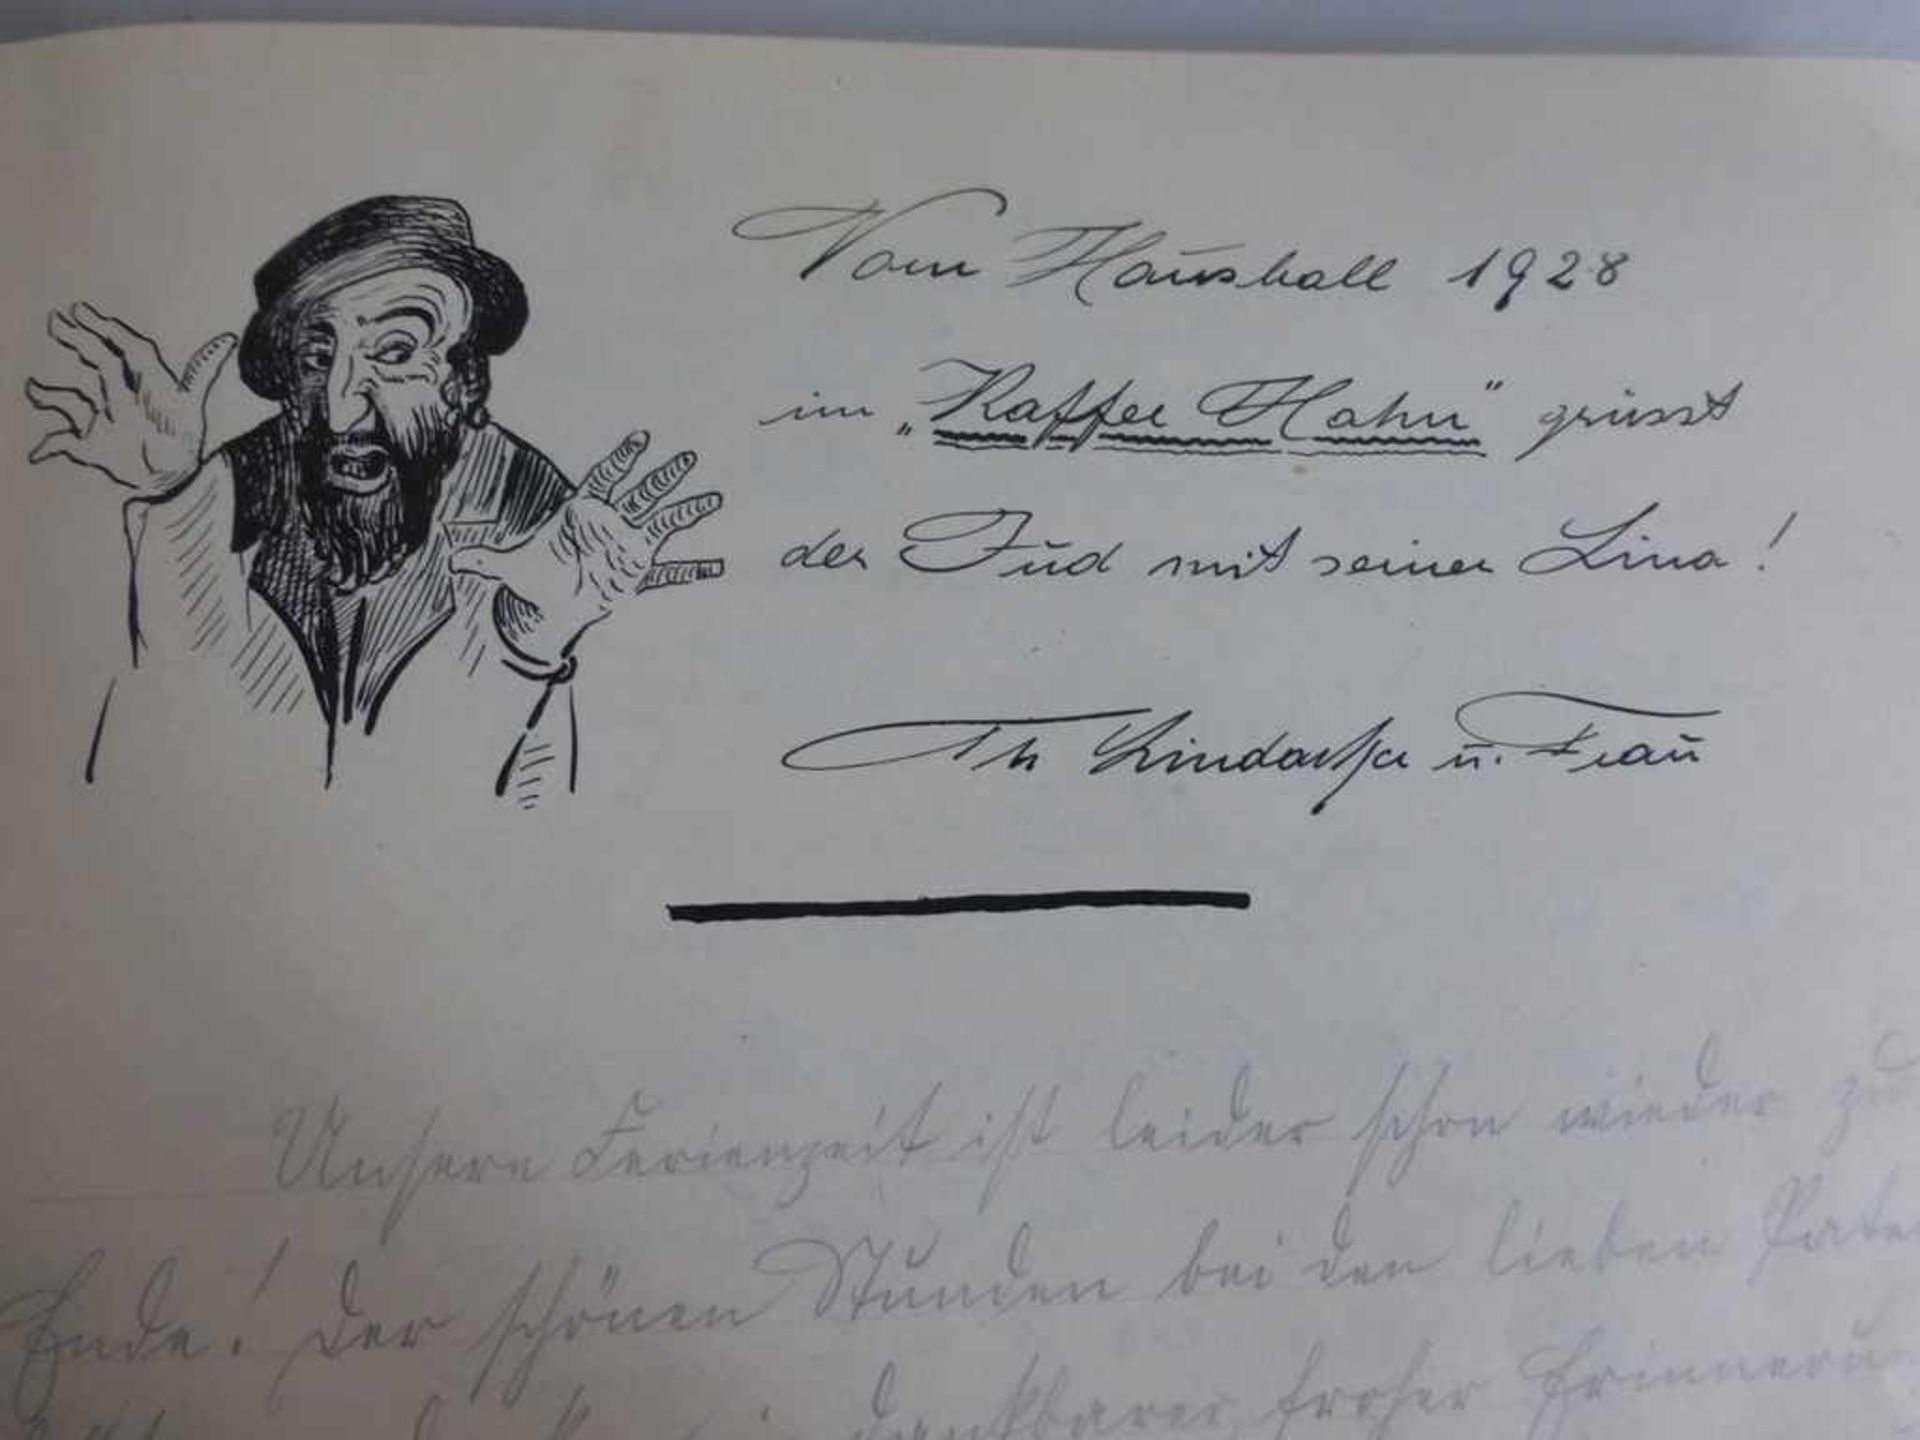 Vom Hausball 1928
im „Kaffee Hahn" grüsst
der Jud mit seiner Lina!
Th u. Frau
Unsere Ferienzeit ist leider schon wieder zu
Ende! Der schönen Stunden bei den lieben
dankbarer froher